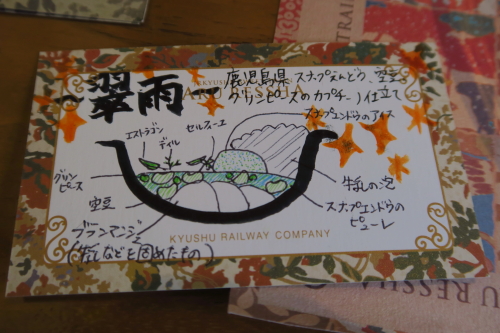 翠雨
鹿児島県 スナップえんどう、空豆、
グリンピースのカプチーノ仕立て
KYUSHU
RESSHA
スナップエンドウのアイス
エストラゴン
ディル
セルフィーユ
グリンピース
空豆
ブランマンジェ
(牛乳などを固めたもの)
牛乳の泡
スナップエンドウの
ピューレ
KYUSHU RAILWAY COMPANY
TRAIN
U RESSHA